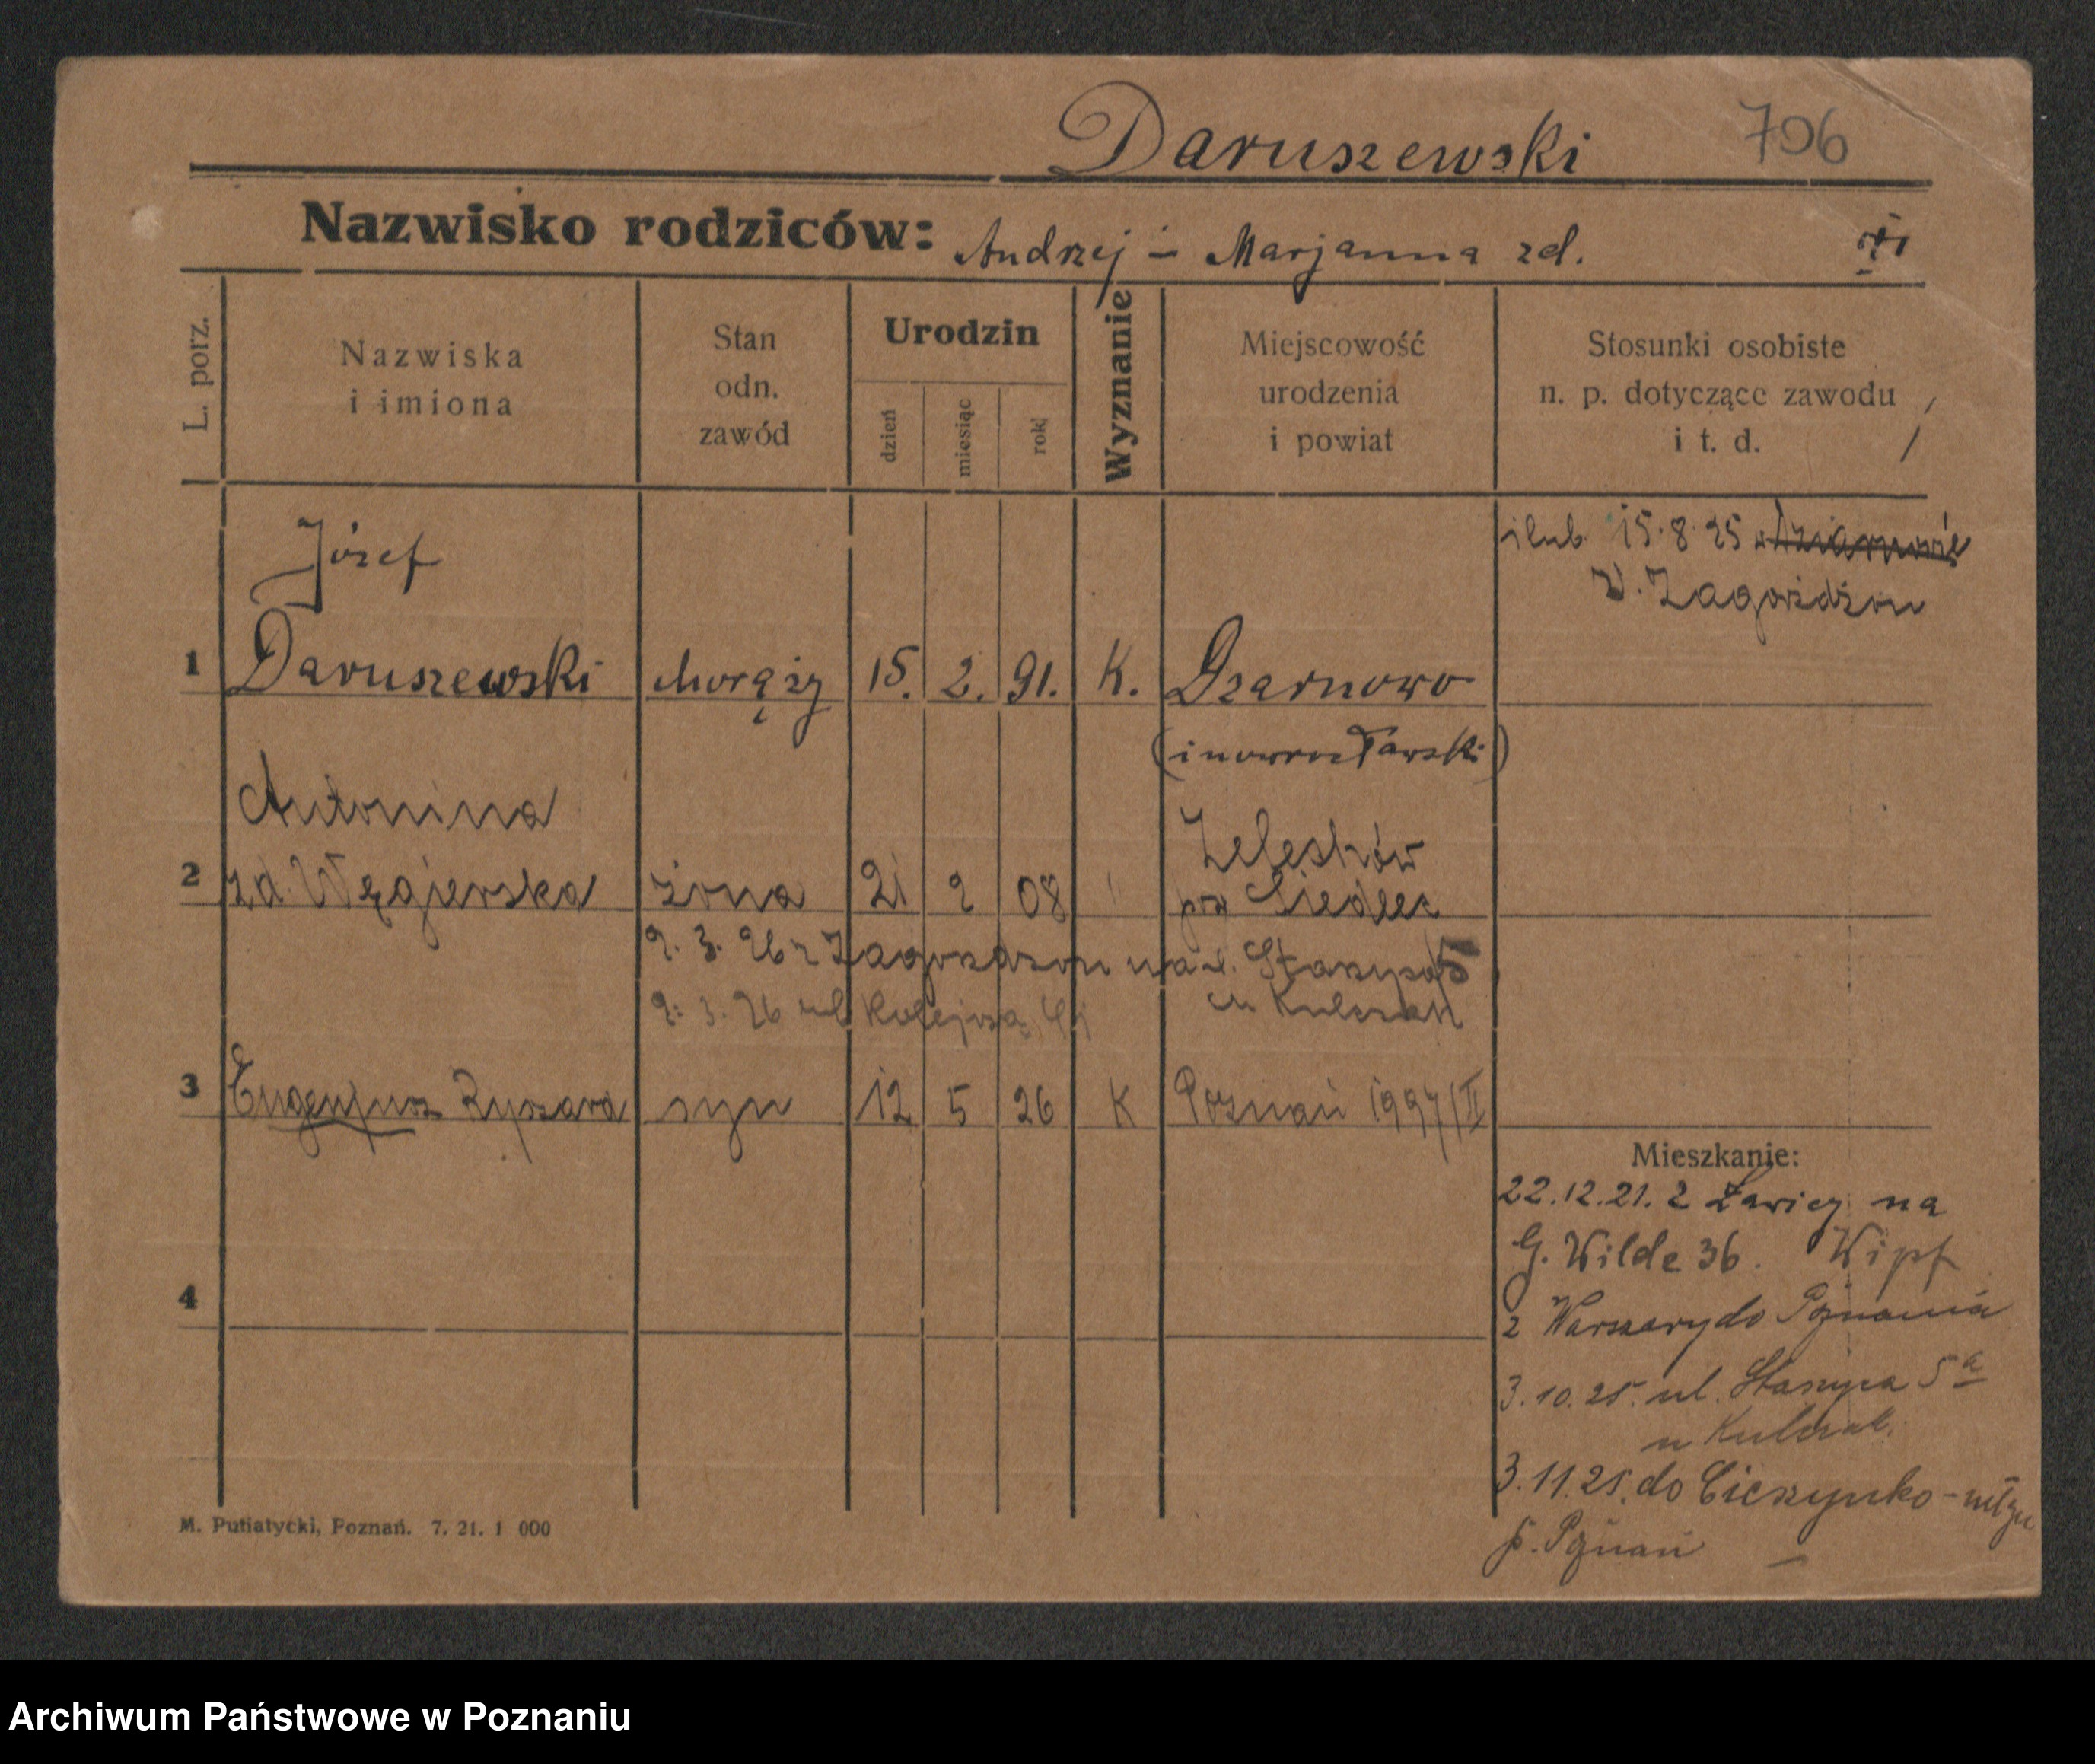 Daruszewski 706
Nazwisko rodziców: Andrzej i Marjanna zd.
L. porz.
Nazwiska
i imiona
Stan
odn.
zawód
Urodzin
dzień
miesiąc
rok
Wyznanie
Miejscowość
urodzenia
i powiat
Stosunki osobiste
n. p. dotyczące zawodu
i t. d.
ślub 15.8.25
Józef
1 Daruszewski chorąży 15. 2. 91. K. Dzarnowo
(inowrocławski)
Antonina
2 zd. Węgierska żona 21 2 08
Żelechów
pow Siedlec
9. 3. 26 z Zagorzdzon na ul. Staszyca 5
u Kulczak
9. 3. 26 ul Kolejowa 44
3 Eugenjusz Ryszard syn 12 5 26 K Poznań 1997/II
4
Mieszkanie:
22.12.21. z Ławicy na
G. Wilde 36. Wipf
z Warszawy do Poznania
3.10.25. ul. Staszyca 5a
u Kulczak.
3.11.25. do
p. Poznań
M. Putiatycki, Poznań. 7. 21. 1 000
Archiwum Państwowe w Poznaniu